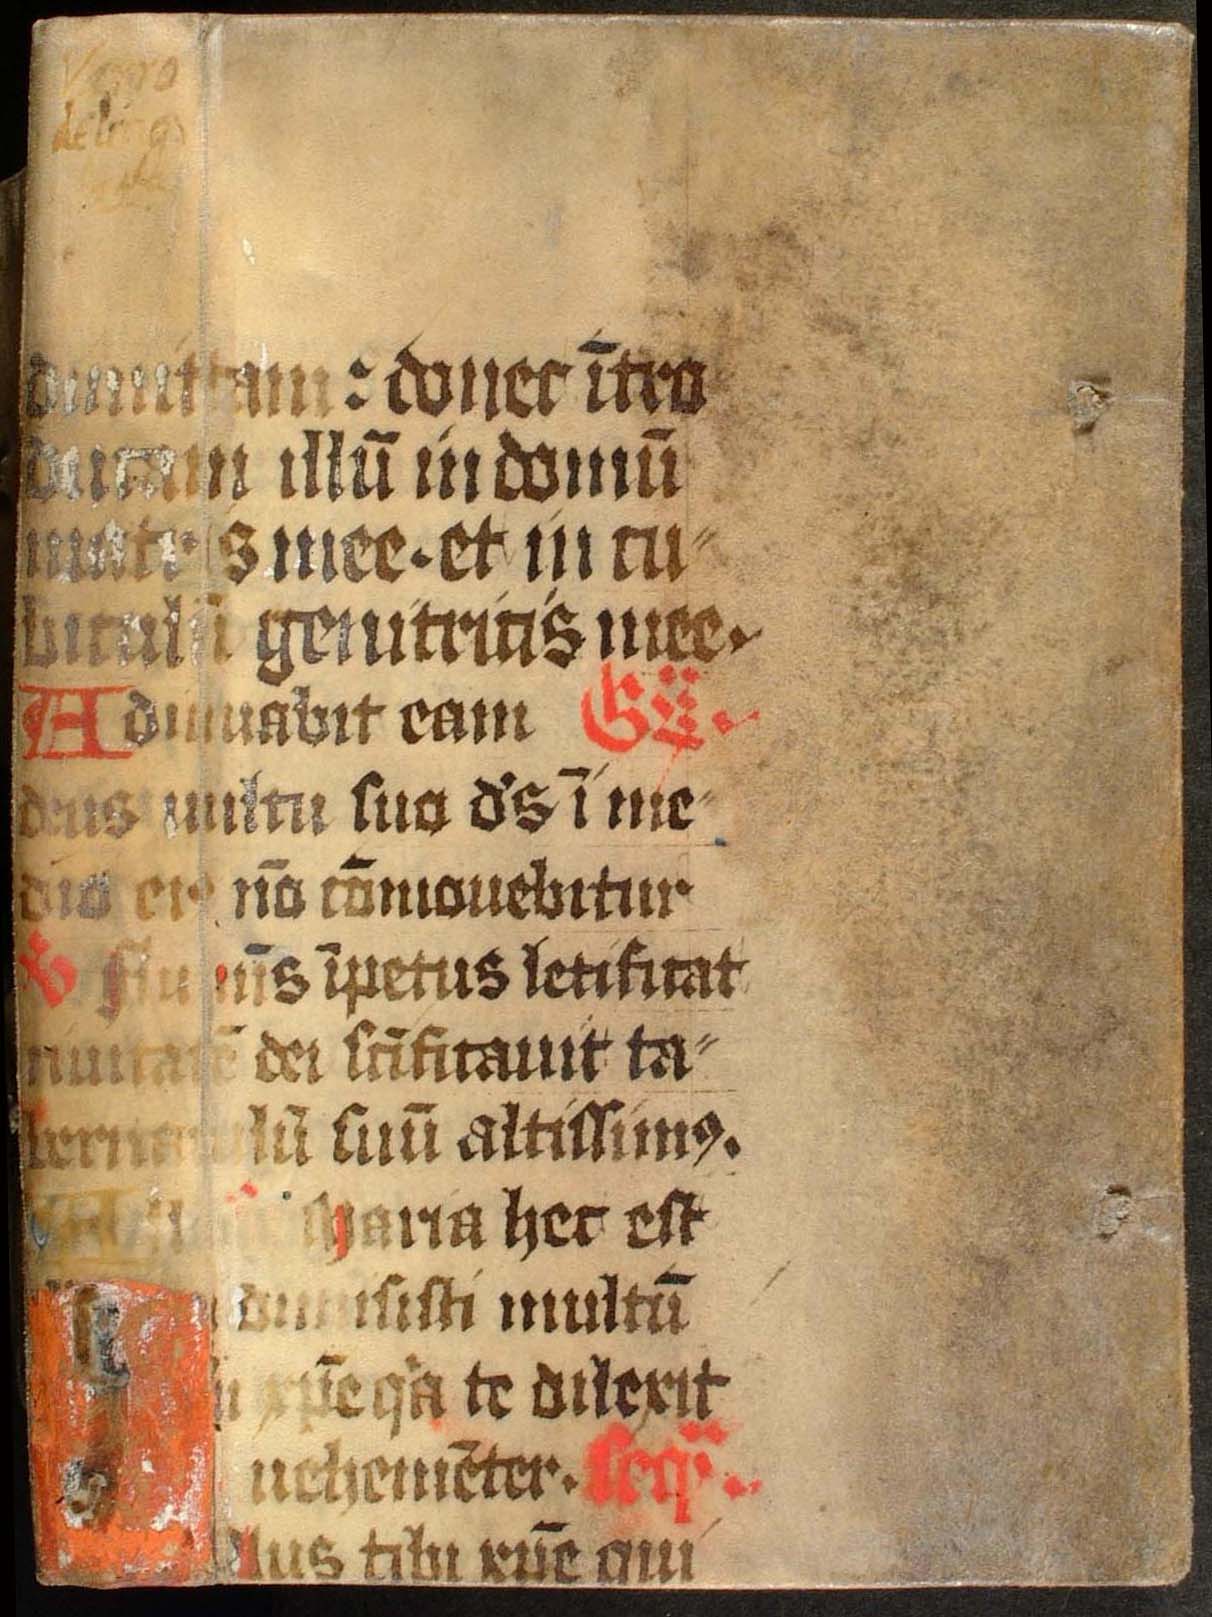 Varro
de ling
dimittam : donec ītro
ducam illū in domū
matris mee. et in cu-
biculū genitricis mee.
Adiuuabit eam Gͣ.
deus uultu suo d's ī me-
dio eiꝰ nō cōmouebitur
V flumīs īpetus letificat
ciuitatē dei scīficauit ta-
bernaculū suū altissimꝰ.
Maria hec est
dimisisti multū
xp̄e qͥa te dilexit
uehemēter. seqͣ.
laus tibi xp̄e qui